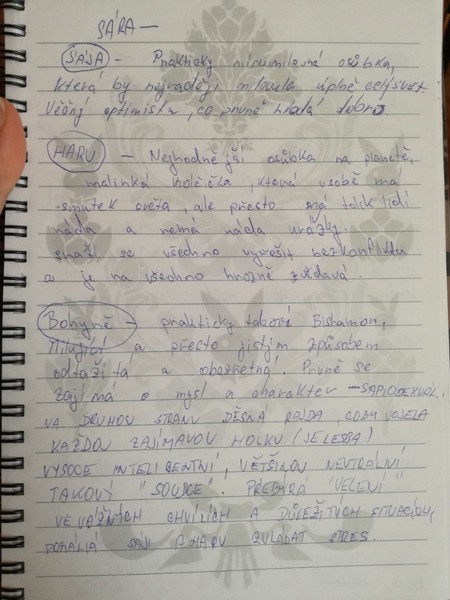 SÁRA —
SÁJA - Prakticky mírumilovná osůbka,
která by nejraději milovala úplně celý svět.
Věčný optimista, co prvně hledá dobro
HARU — Nejhodnější osůbka na planetě,
malinká holčička, která v sobě má
smutek světa, ale přesto má tolik lidí
ráda a nemá ráda
snaží se všechno vyřešit bezkonfliktu
a je na všechno hrozně zvědavá.
Bohyně - prakticky taková Bishamon,
Milující a přesto jistým způsobem
odtažitá a obezřetná. Prvně se
zajímá o mysl a charakter —SAPIOSEXUÁL.
NA DRUHOU STRANU DĚSNÁ RAJDA, COBY VOJELA
KAŽDOU ZAJÍMAVOU HOLKU (JE LESBA)
VYSOCE INTELIGENTNÍ, VĚTŠINOU NEUTRÁLNÍ
TAKOVÝ "SOUDCE". PŘEBÍRÁ "VELENÍ"
VE VÁŽNÝCH CHVÍLÍCH A DŮLEŽITÝCH SITUACÍCH,
POMÁHÁ SÁJE A HARU ZVLÁDAT STRES.